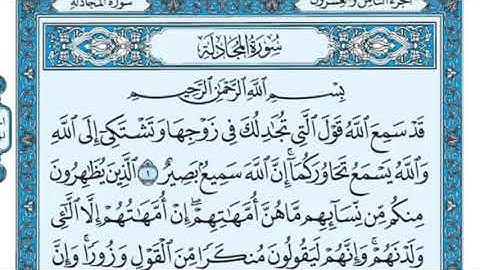 سورة المجادلة
الجزء الثامن والعشرون
سُورَةُ المُجَادلَة
بِسْمِ اللَّهِ الرَّحْمَٰنِ الرَّحِيمِ
قَدْ سَمِعَ اللَّهُ قَوْلَ الَّتِي تُجَادِلُكَ فِي زَوْجِهَا وَتَشْتَكِي إِلَى اللَّهِ
وَاللَّهُ يَسْمَعُ تَحَاوُرَكُمَا إِنَّ اللَّهَ سَمِيعٌ بَصِيرٌ ١ الَّذِينَ يُظَاهِرُونَ
مِنكُم مِّن نِّسَائِهِم مَّا هُنَّ أُمَّهَاتِهِمْ إِنْ أُمَّهَاتُهُمْ إِلَّا اللَّائِي
وَلَدْنَهُمْ وَإِنَّهُمْ لَيَقُولُونَ مُنكَرًا مِّنَ الْقَوْلِ وَزُورًا وَإِنَّ